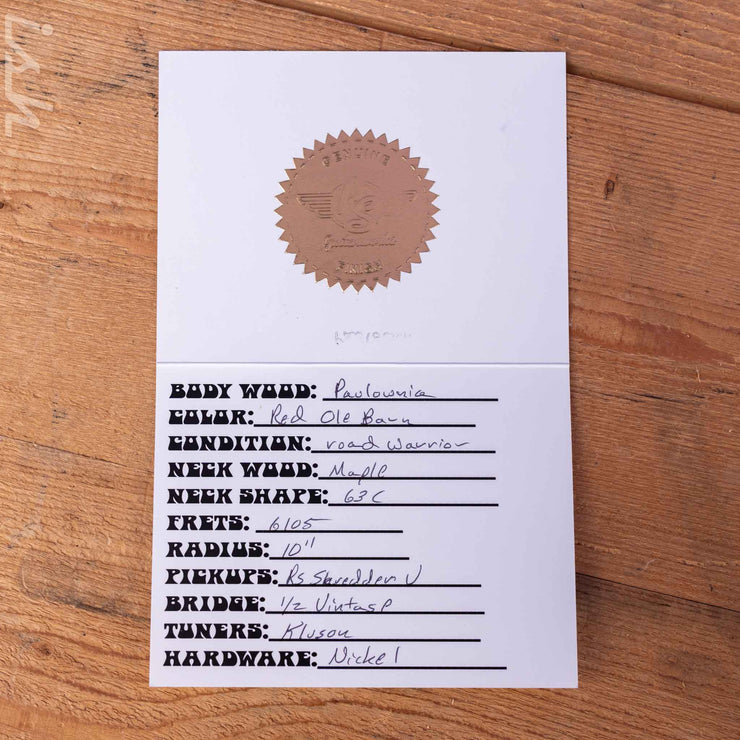 ish
GENUINE
Guitarworks
FINISH
BODY WOOD: Paulownia
COLOR: Red Ole Barn
CONDITION: road warrior
NECK WOOD: Maple
NECK SHAPE: 63 C
FRETS: 6105
RADIUS: 10"
PICKUPS: RS Shredder V
BRIDGE: 1/2 Vintage
TUNERS: Kluson
HARDWARE: Nickel